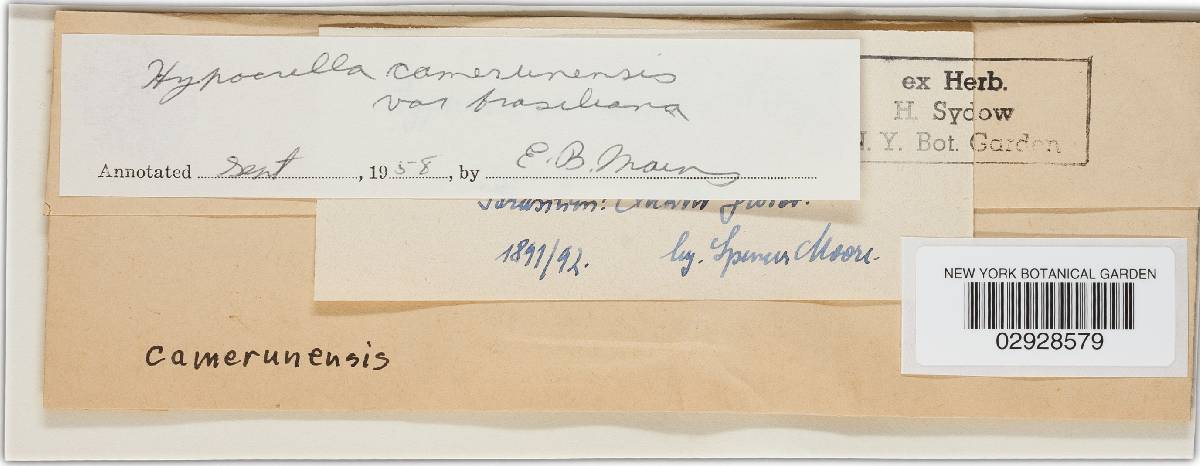 Hypocrella camerunensis
var brasiliana
Annotated Sept, 1958, by E. B. Mains
ex Herb.
H. Sydow
N. Y. Bot. Garden
1891/92. leg. Spencer Moore.
NEW YORK BOTANICAL GARDEN
02928579
camerunensis